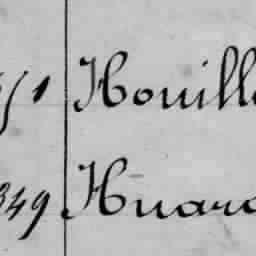 51 Houill
349 Huar